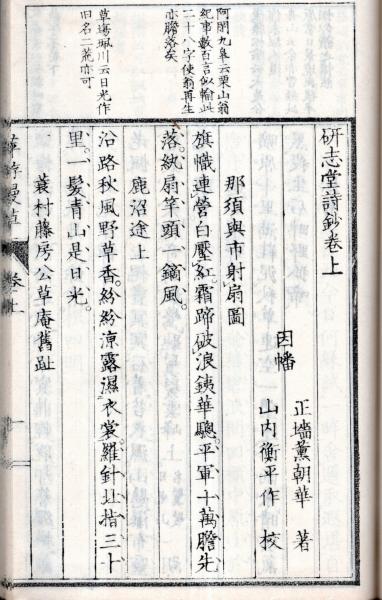 研志堂詩鈔卷上
因幡
正墻薫朝華 著
山内衡平作 校
那須與市射扇圖
旗幟連營白壓紅。霜蹄破浪銕華驄。平軍十萬膽先
落。紈扇竿頭一鏑風。
鹿沼途上
沿路秋風野草香。紛紛涼露濕衣裳。羅針北指三十
里。一髮青山是日光。
蓑村藤房公草庵舊趾
阿閦九皐云栗山翁
紀事數百言似輸此
二十八字使翁再生
亦膽落矣
草場珮川云日光作
旧名二荒亦可
卷上